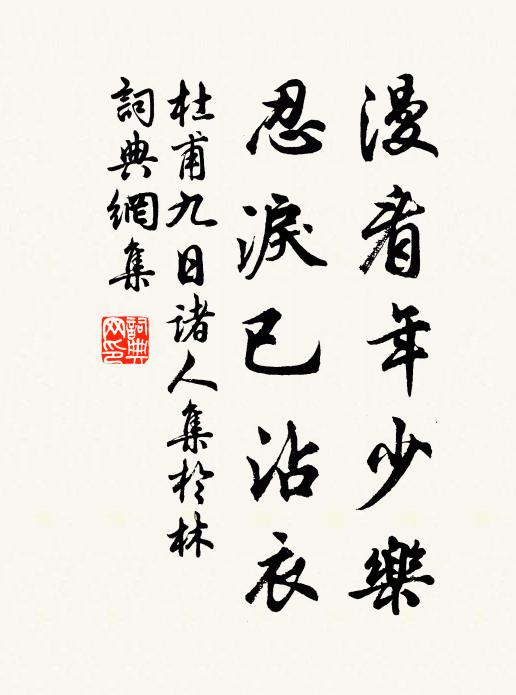 漫看年少樂
忍淚已沾衣
杜甫九日諸人集於林
詞典網集
詞典網印